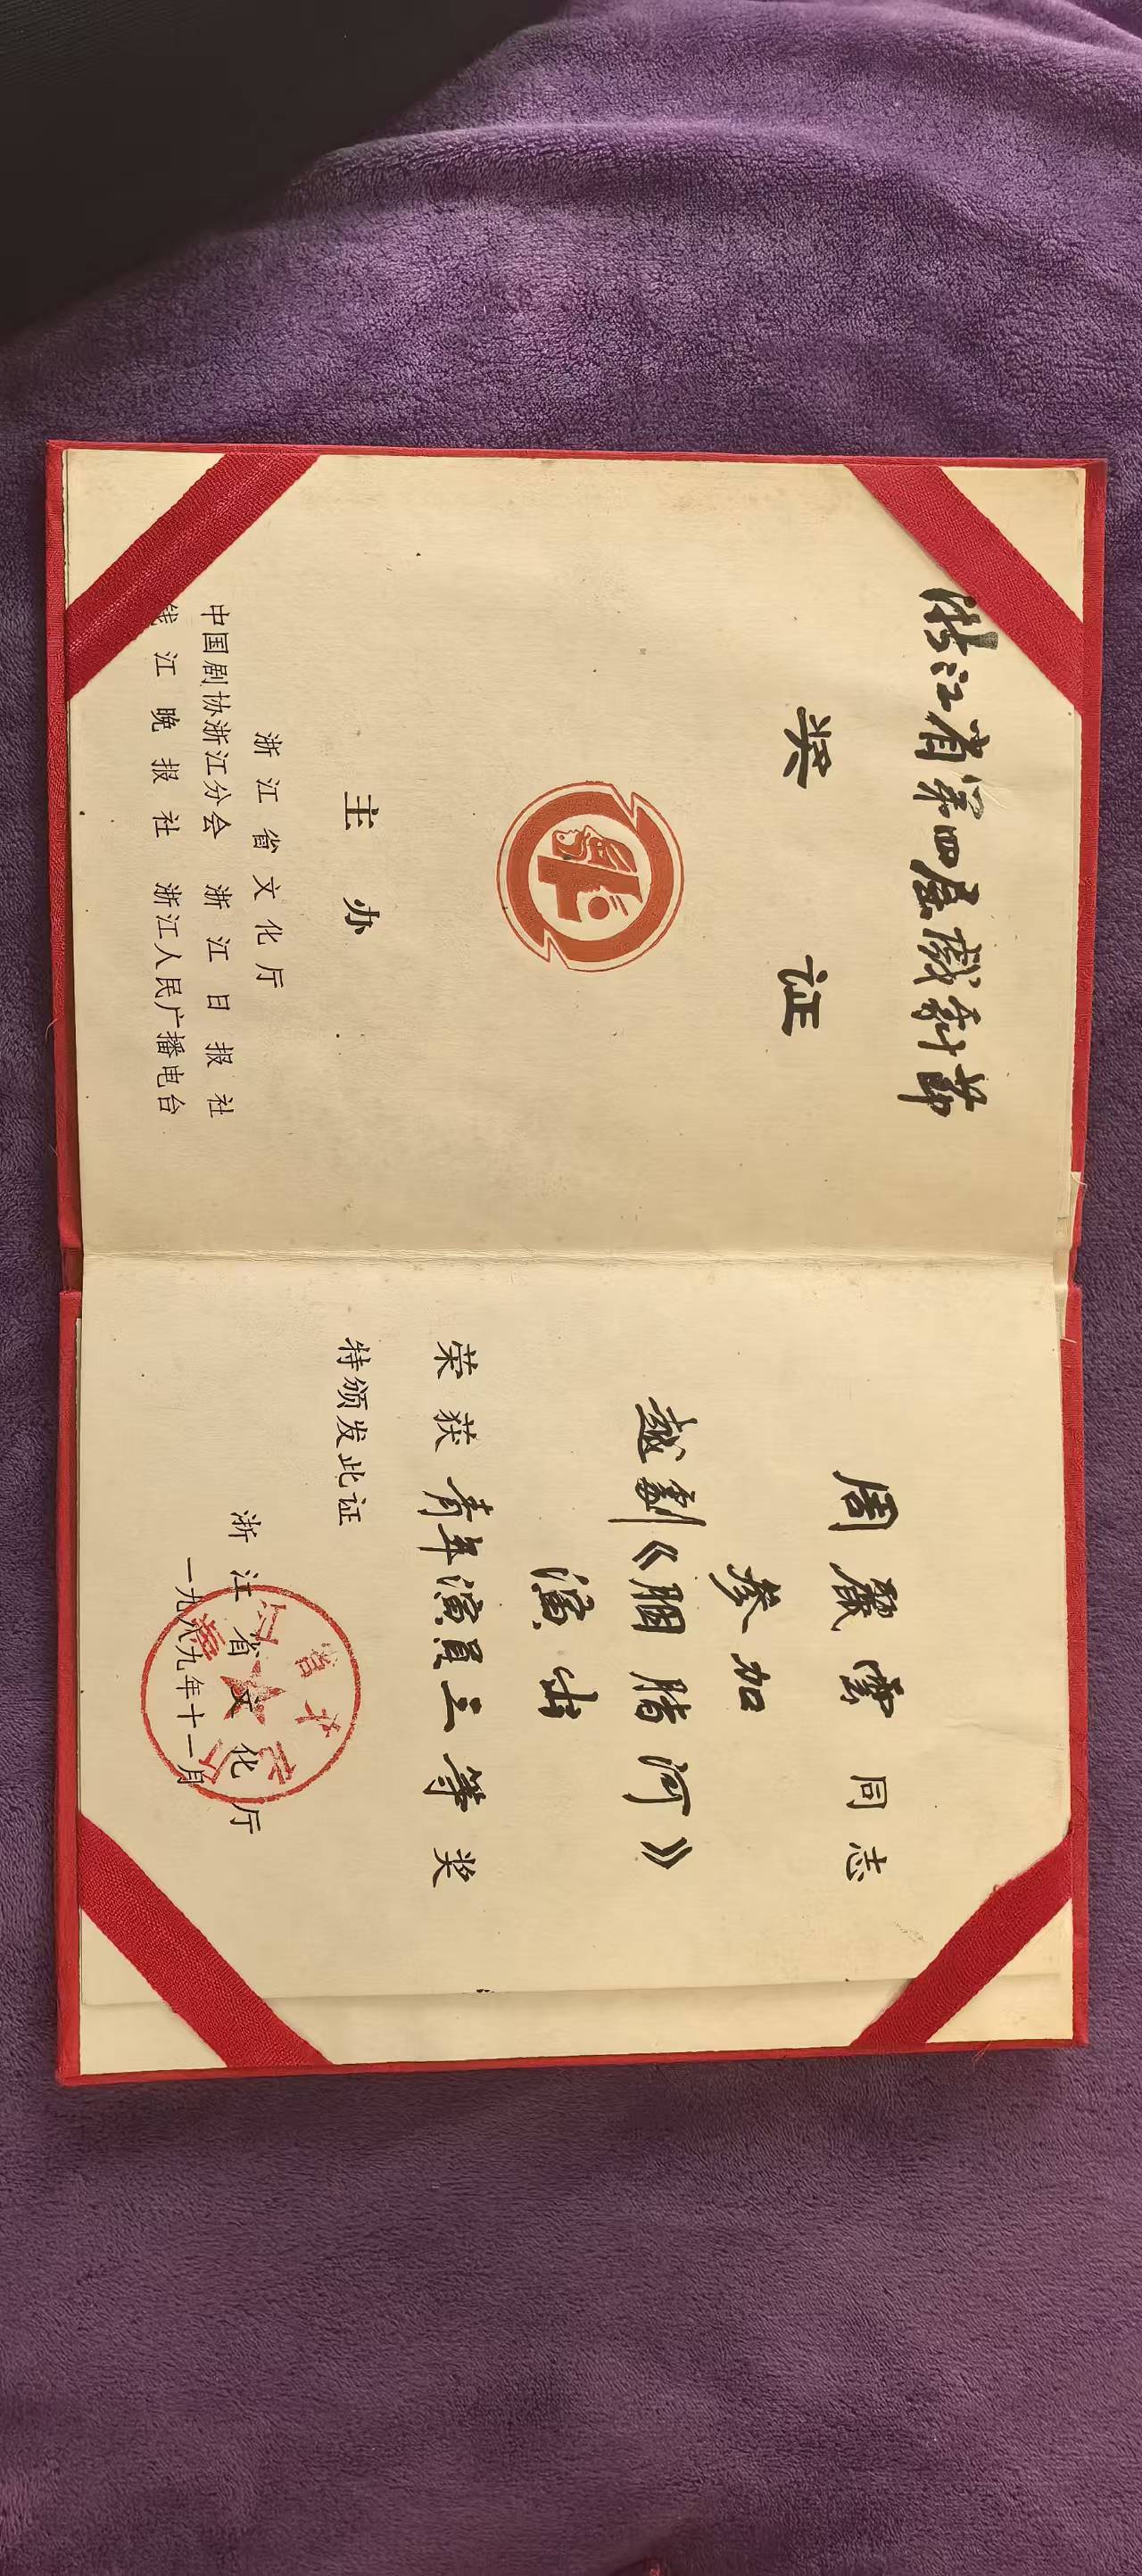 浙江省第四届戏剧节
奖 证
主 办
浙江省文化厅
中国剧协浙江分会 浙江日报社
钱江晚报社 浙江人民广播电台
周丽雲 同志
参加
越劇《胭脂河》
演出
荣获青年演員三等奖
特颁发此证
浙江省文化厅
一九八九年十一月